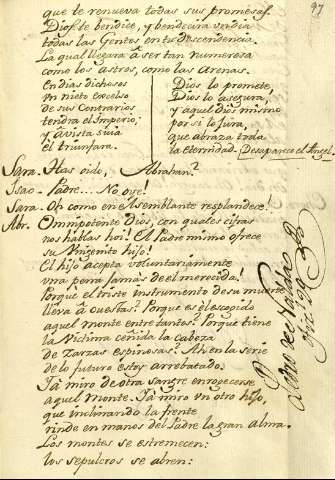 97
que te renueva todas sus promesas.
Dios te bendice, y bendecirá un dia
todas las Gentes en tu descendencia.
La qual llegara à sèr tan numerosa
como los astros, como las Arenas.
En dias dichosos
vn nieto excelso
de sus Contrarios
tendra el Imperio,
y âvista suia
el triunfara.
Dios lo promete,
Dios lo asegura,
y aquel dios mismo
por si lo jura,
que abraza toda
la eternidad. Desaparece el Angel.
Sara. Has oido, Abrahan?
Isac. Padre... No oye!
Sara. Oh como en el semblante resplandece!
Abr. Omnipotente Dios, con quales cifras
nos hablas hoi! El Padre mismo ofrece
su Vnigenito hijo!
El hijo acepta voluntariamente
vna pena jamas de el merecida!
Porque el triste instrumento de su muerte
lleva à cuestas? Porque es èl escogido
aquel monte entre tantos? Porque tiene
la Victima ceñida la cabeza
de Zarzas espinosas? Ah en la serie
de lo futuro estoy arrebatado.
Ya miro de otra sangre enrogecerse
aquel Monte. Ya miro vn otro hijo,
que inclinando la frente
rinde en manos del Padre la gran alma.
Los montes se estremecen:
los sepulcros se abren: